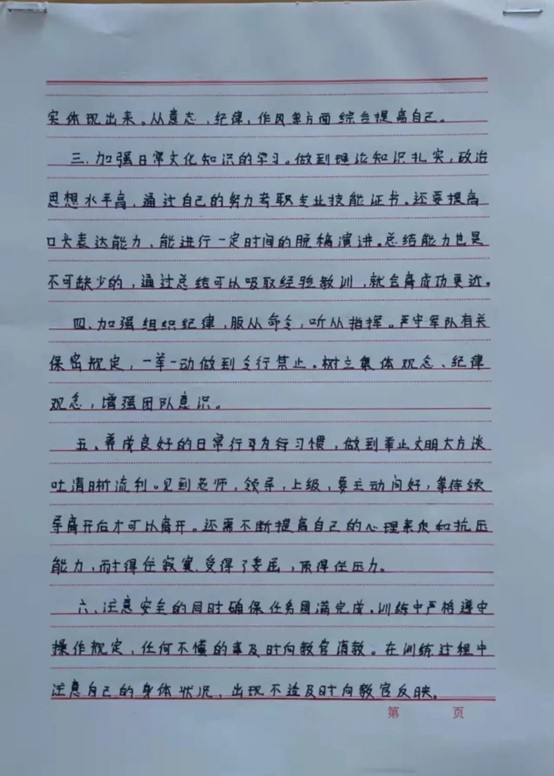 实体现出来。从意志，纪律，作风等方面综合提高自己。
三.加强日常文化知识的学习。做到理论知识扎实，政治
思想水平高，通过自己的努力考取专业技能证书。还要提高
口头表达能力、能进行一定时间的脱稿演讲。总结能力也是
不可缺少的，通过总结可以吸取经验教训，就会离成功更近。
四、加强组织纪律，服从命令，听从指挥。严守军队有关
保密规定，一举一动做到令行禁止。树立集体观念、纪律
观念，增强团队意识。
五、养成良好的日常行为行习惯，做到举止文明大方谈
吐清晰流利。见到老师，领导，上级，要主动问好，等待领
导离开后才可以离开。还需不断提高自己的心理素质和抗压
能力，耐得住寂寞.受得了委屈，顶得住压力。
六、注意安全的同时确保任务圆满完成。训练中严格遵守
操作规定，任何不懂的事及时向教官请教。在训练过程中
注意自己的身体状况，出现不适及时向教官反映。
第 页